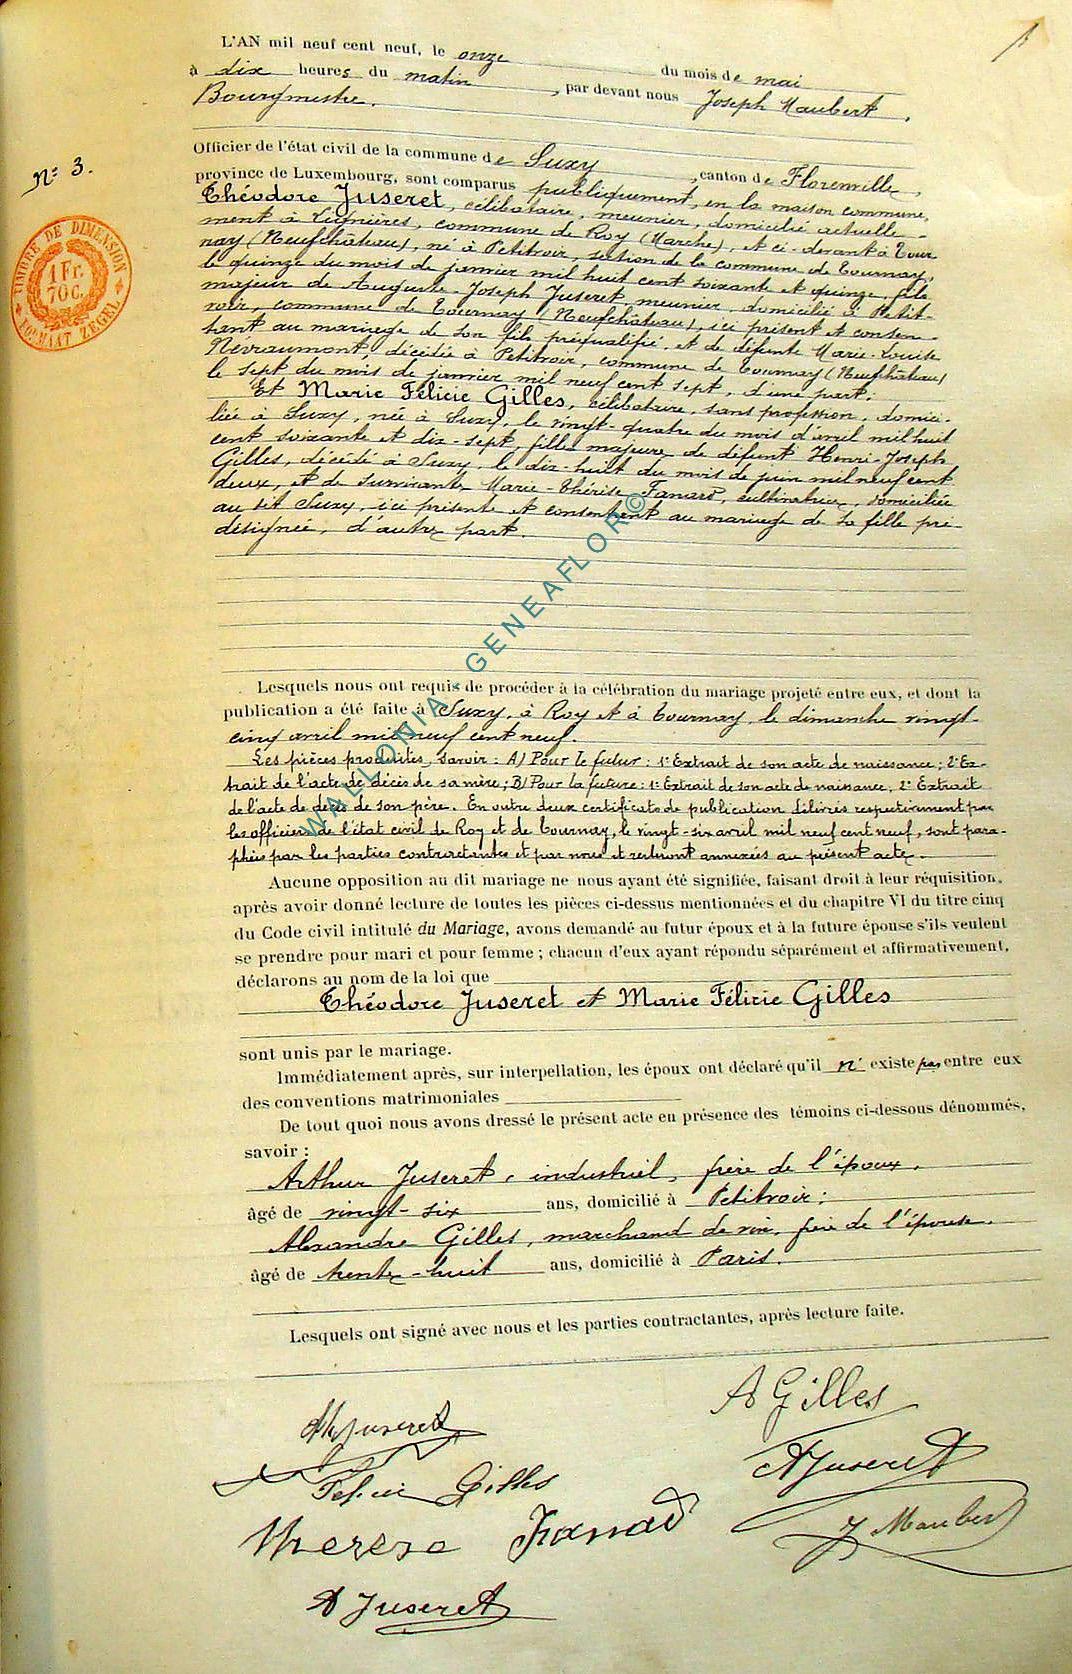 L'AN mil neuf cent neuf, le onze du mois de mai
à dix heures du matin, par devant nous Joseph Maubert
Bourgmestre.
Officier de l'état civil de la commune de Suxy, canton de Florenville,
province de Luxembourg, sont comparus publiquement, en la maison commune,
N° 3.
TIMBRE DE DIMENSION
1 Fr.
70 C.
FORMAAT ZEGEL
Théodore Juseret, célibataire, meunier, domicilié actuelle-
ment à Lignières, commune de Roy (Marche), et ci-devant à Tour-
nay (Neufchâteau), né à Petitvoir, section de la commune de Tournay,
le quinze du mois de janvier mil huit cent soixante et quinze, fils
majeur de Auguste-Joseph Juseret, meunier, domicilié à Petit-
voir, commune de Tournay (Neufchâteau), ici présent et consen-
tant au mariage de son fils préqualifié et de défunte Marie-Louise
Névraumont, décédée à Petitvoir, commune de Tournay (Neufchâteau)
le sept du mois de janvier mil neuf cent sept, d'une part;
Et Marie Félicie Gilles, célibataire, sans profession, domici-
liée à Suxy, née à Suxy, le vingt-quatre du mois d'avril mil huit
cent soixante et dix-sept, fille majeure de défunt Henri-Joseph
Gilles, décédé à Suxy, le dix-huit du mois de juin mil neuf cent
deux, et de survivante Marie-Thérèse Fanard, cultivatrice, domiciliée
au dit Suxy, ici présente et consentent au mariage de sa fille pré-
désignée, d'autre part.
WALLONIA - GENEAFLOR©
Lesquels nous ont requis de procéder à la célébration du mariage projeté entre eux, et dont la
publication a été faite à Suxy, à Roy et à Tournay, le dimanche vingt-
cinq avril mil neuf cent neuf.
Les pièces produites, savoir: A) Pour le futur: 1° Extrait de son acte de naissance; 2° Ex-
trait de l'acte de décès de sa mère; B) Pour la future: 1° Extrait de son acte de naissance, 2° Extrait
de l'acte de décès de son père. En outre deux certificats de publication délivrés respectivement par
les officiers de l'état civil de Roy et de Tournay, le vingt-six avril mil neuf cent neuf, sont para-
phés par les parties contractantes et par nous et resteront annexées au présent acte.
Aucune opposition au dit mariage ne nous ayant été signifiée, faisant droit à leur réquisition,
après avoir donné lecture de toutes les pièces ci-dessus mentionnées et du chapitre VI du titre cinq
du Code civil intitulé du Mariage, avons demandé au futur époux et à la future épouse s'ils veulent
se prendre pour mari et pour femme; chacun d'eux ayant répondu séparément et affirmativement,
déclarons au nom de la loi que
Théodore Juseret et Marie Félicie Gilles
sont unis par le mariage.
Immédiatement après, sur interpellation, les époux ont déclaré qu'il n' existe pas entre eux
des conventions matrimoniales
De tout quoi nous avons dressé le présent acte en présence des témoins ci-dessous dénommés,
savoir :
Arthur Juseret, industriel, frère de l'époux,
âgé de vingt-six ans, domicilié à Petitvoir;
Alexandre Gilles, marchand de vin, frère de l'épouse.
âgé de trente-huit ans, domicilié à Paris.
Lesquels ont signé avec nous et les parties contractantes, après lecture faite.
A Gilles
Juseret
A Juseret
Félicie Gilles
J Maubert
Therese Fanard
A Juseret